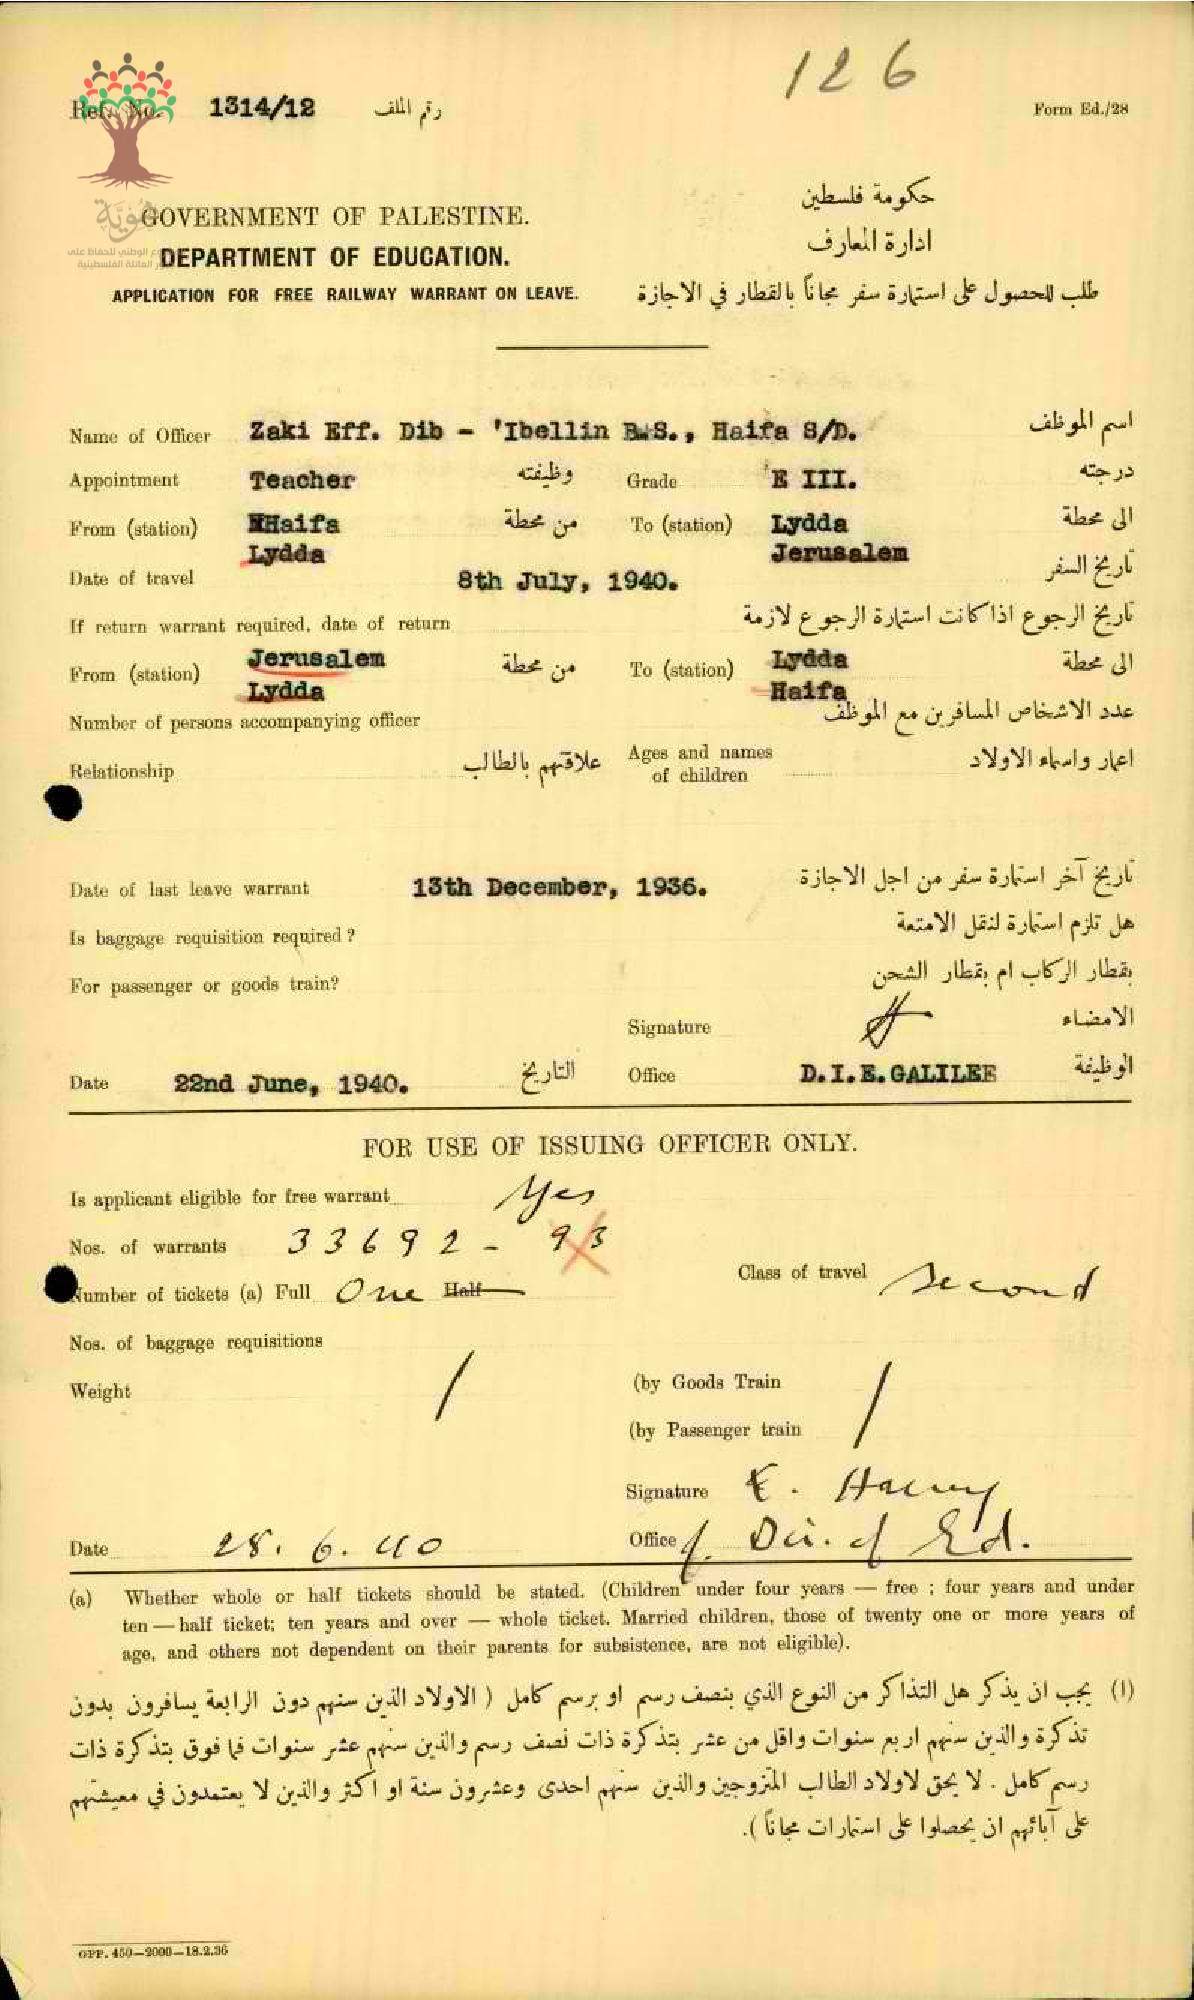 126
Ref. No. 1314/12 رقم الملف
Form Ed./28
هُوِيَّة
GOVERNMENT OF PALESTINE.
حكومة فلسطين
DEPARTMENT OF EDUCATION.
ادارة المعارف
APPLICATION FOR FREE RAILWAY WARRANT ON LEAVE.
طلب للحصول على استمارة سفر مجاناً بالقطار في الاجازة
Name of Officer Zaki Eff. Dib - 'Ibellin B.S., Haifa S/D. اسم الموظف
Appointment Teacher وظيفته Grade E III. درجته
From (station) Haifa من محطة To (station) Lydda الى محطة
Lydda Jerusalem
Date of travel 8th July, 1940. تاريخ السفر
If return warrant required, date of return تاريخ الرجوع اذا كانت استمارة الرجوع لازمة
From (station) Jerusalem من محطة To (station) Lydda الى محطة
Lydda Haifa
Number of persons accompanying officer عدد الاشخاص المسافرين مع الموظف
Relationship علاقتهم بالطالب Ages and names of children اعمار واسماء الاولاد
Date of last leave warrant 13th December, 1936. تاريخ آخر استمارة سفر من اجل الاجازة
Is baggage requisition required? هل تلزم استمارة لنقل الامتعة
For passenger or goods train? بقطار الركاب ام بقطار الشحن
Signature الامضاء
Date 22nd June, 1940. التاريخ Office D.I.E.GALILEE الوظيفة
FOR USE OF ISSUING OFFICER ONLY.
Is applicant eligible for free warrant Yes
Nos. of warrants 33692 - 93
Class of travel Second
Number of tickets (a) Full One Half
Nos. of baggage requisitions
Weight / (by Goods Train /
(by Passenger train
Signature E. Harvey
Date 28.6.40 Office f. Dir. of Ed.
(a) Whether whole or half tickets should be stated. (Children under four years — free ; four years and under
ten — half ticket; ten years and over — whole ticket. Married children, those of twenty one or more years of
age, and others not dependent on their parents for subsistence, are not eligible).
(ا) يجب ان يذكر هل التذاكر من النوع الذي بنصف رسم او برسم كامل ( الاولاد الذين سنهم دون الرابعة يسافرون بدون
تذكرة والذين سنهم اربع سنوات واقل من عشر بتذكرة ذات نصف رسم والذين سنهم عشر سنوات فما فوق بتذكرة ذات
رسم كامل . لا يحق لاولاد الطالب المتزوجين والذين سنهم احدى وعشرون سنة او اكثر والذين لا يعتمدون في معيشتهم
على آبائهم ان يحصلوا على استمارات مجاناً ).
GPP. 450—2000—18.2.36